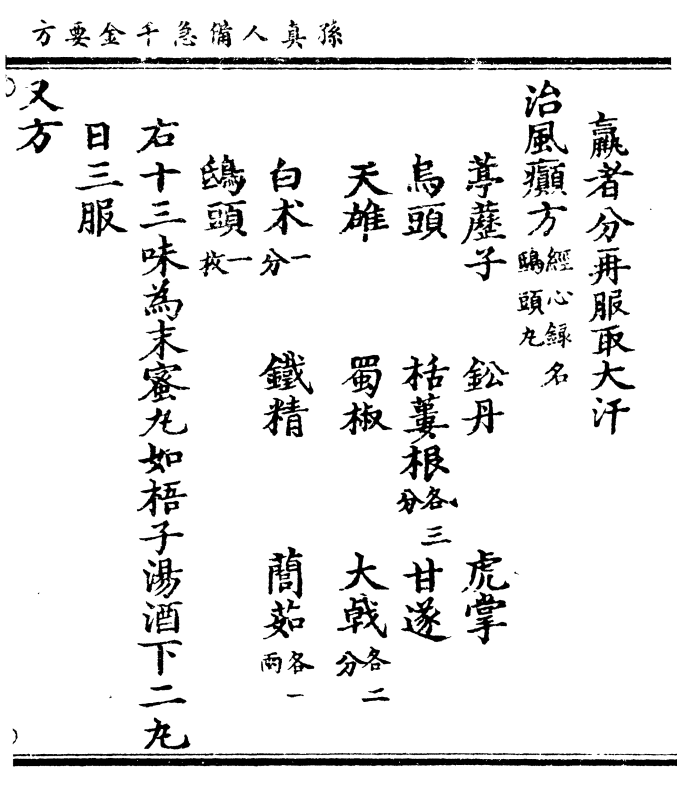 孫真人備急千金要方
羸者分再服取大汗
治風癲方 經心録名鴟頭丸
葶藶子 鈆丹 虎掌
烏頭 栝蔞根各三分 甘遂
天雄 蜀椒 大戟各二分
白术一分 鐵精 䕡茹各一兩
鴟頭一枚
右十三味為末蜜丸如梧子湯酒下二丸
日三服
又方